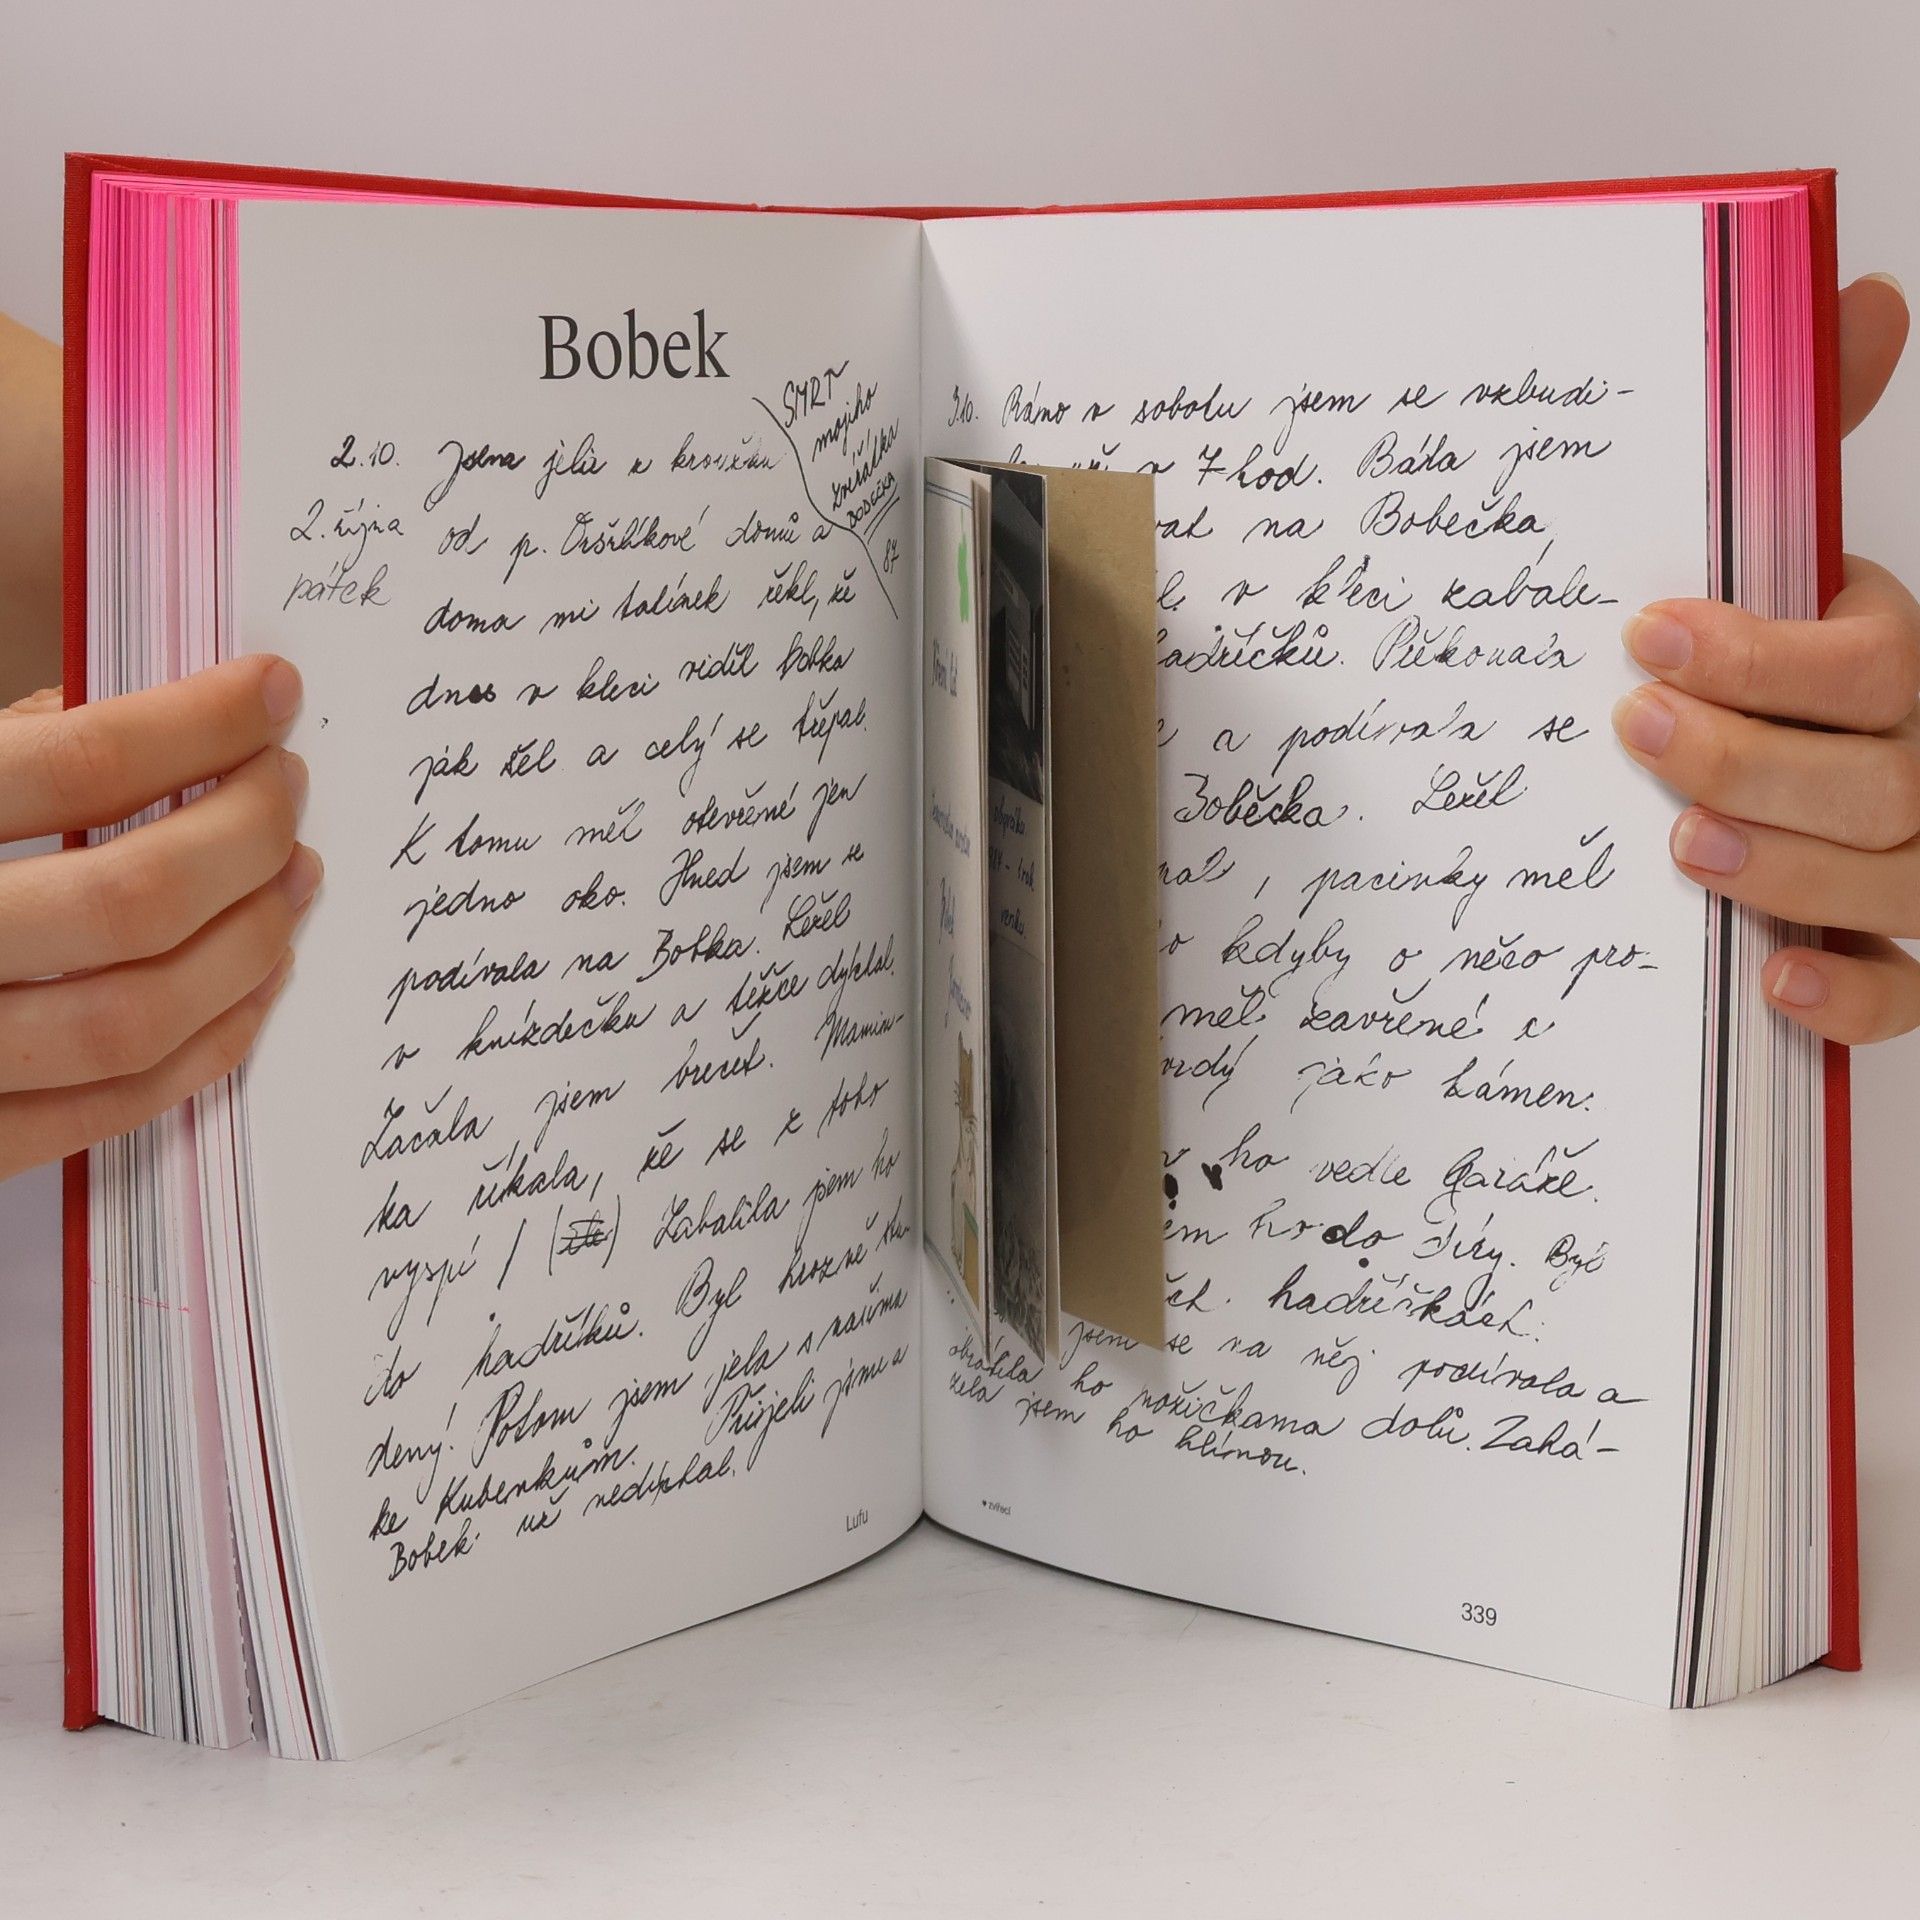 Bobek
SMRT
mojího
zvířátka
BOBEČKA
87
2.10. Jsem jela z kroužku
2. října
pátek
od p. Oršulíkové domů a
doma mi tatínek řekl, že
dnes v kleci viděl Bobka
ják šel a celý se třepal.
K tomu měl otevřené jen
jedno oko. Hned jsem se
podívala na Bobka. Ležel
v hnízdečku a těžce dýchal.
Začala jsem brečet. Mamin-
ka říkala, že se z toho
vyspí / Zabalila jsem ho
do hadříků. Byl hrozně stu-
dený! Potom jsem jela s našima
ke Kubenkům. Přijeli jsme a
Bobek už nedýchal.
Lufu
3.10. Ráno v sobotu jsem se vzbudi-
v 7 hod. Bála jsem
vat na Bobečka,
v kleci zabale-
adříčků. Překonala
a podívala se
Bobečka. Ležel
, pacinky měl
kdyby o něco pro-
měl zavřené a
vrdý jáko kámen.
ho vedle garáže.
em ho do díry. Byl
ých hadříškách.
jsem se na něj podívala a
obrátila ho nožičkama dolů. Zahá-
zela jsem ho hlínou.
♥ zvířecí
339